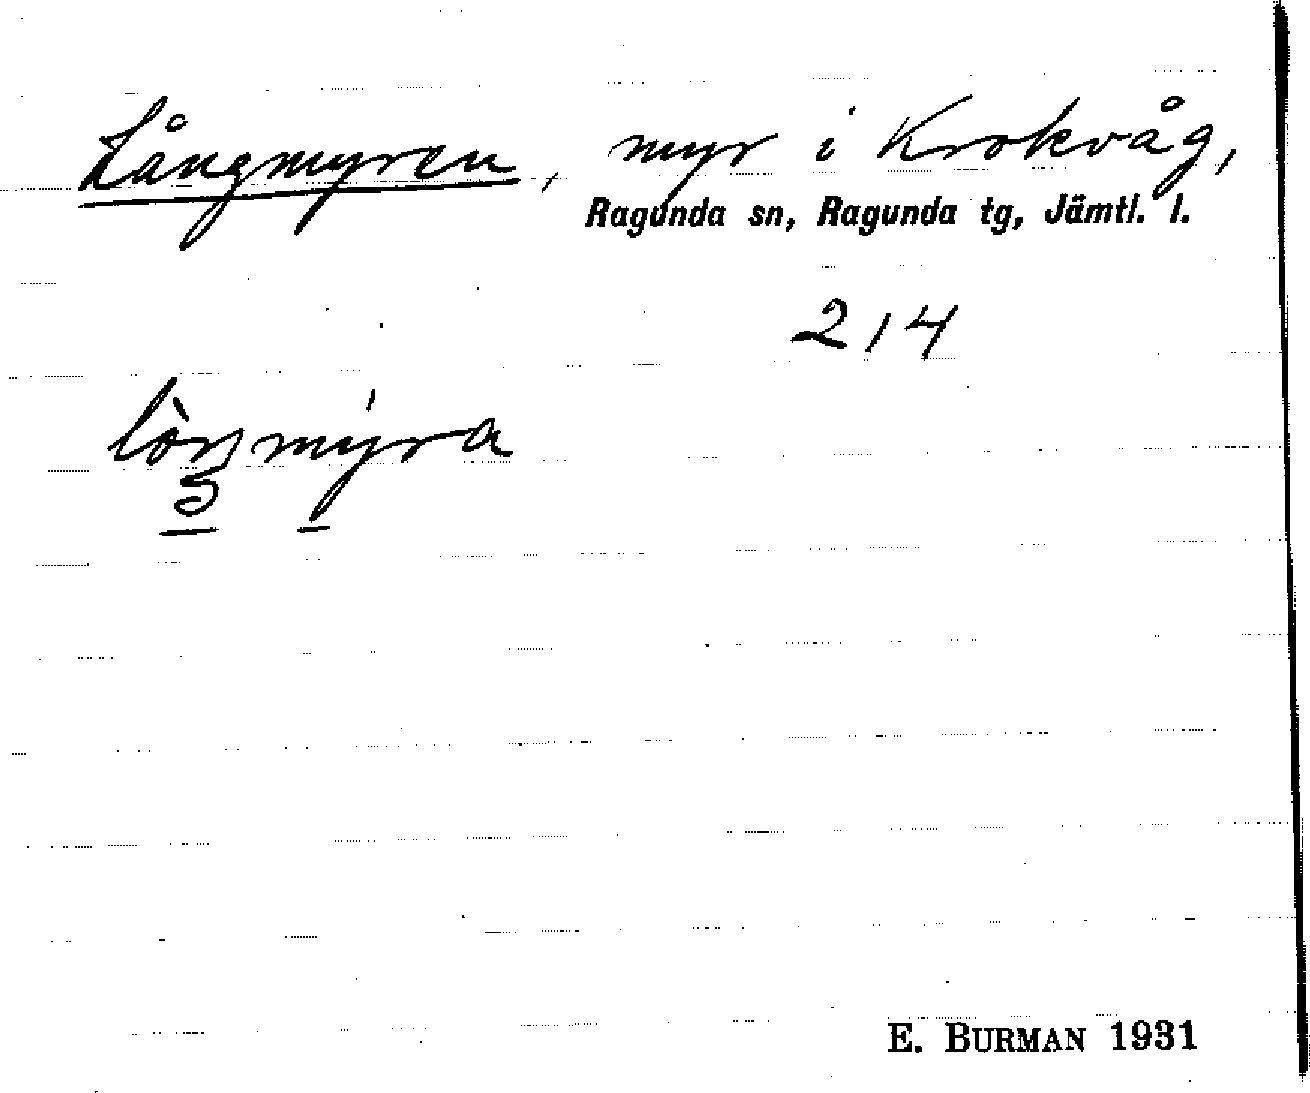 Långmyren, myr i Krokvåg,
Ragunda sn, Ragunda tg, Jämtl. l.
214
lòŋmýra
E. BURMAN 1931